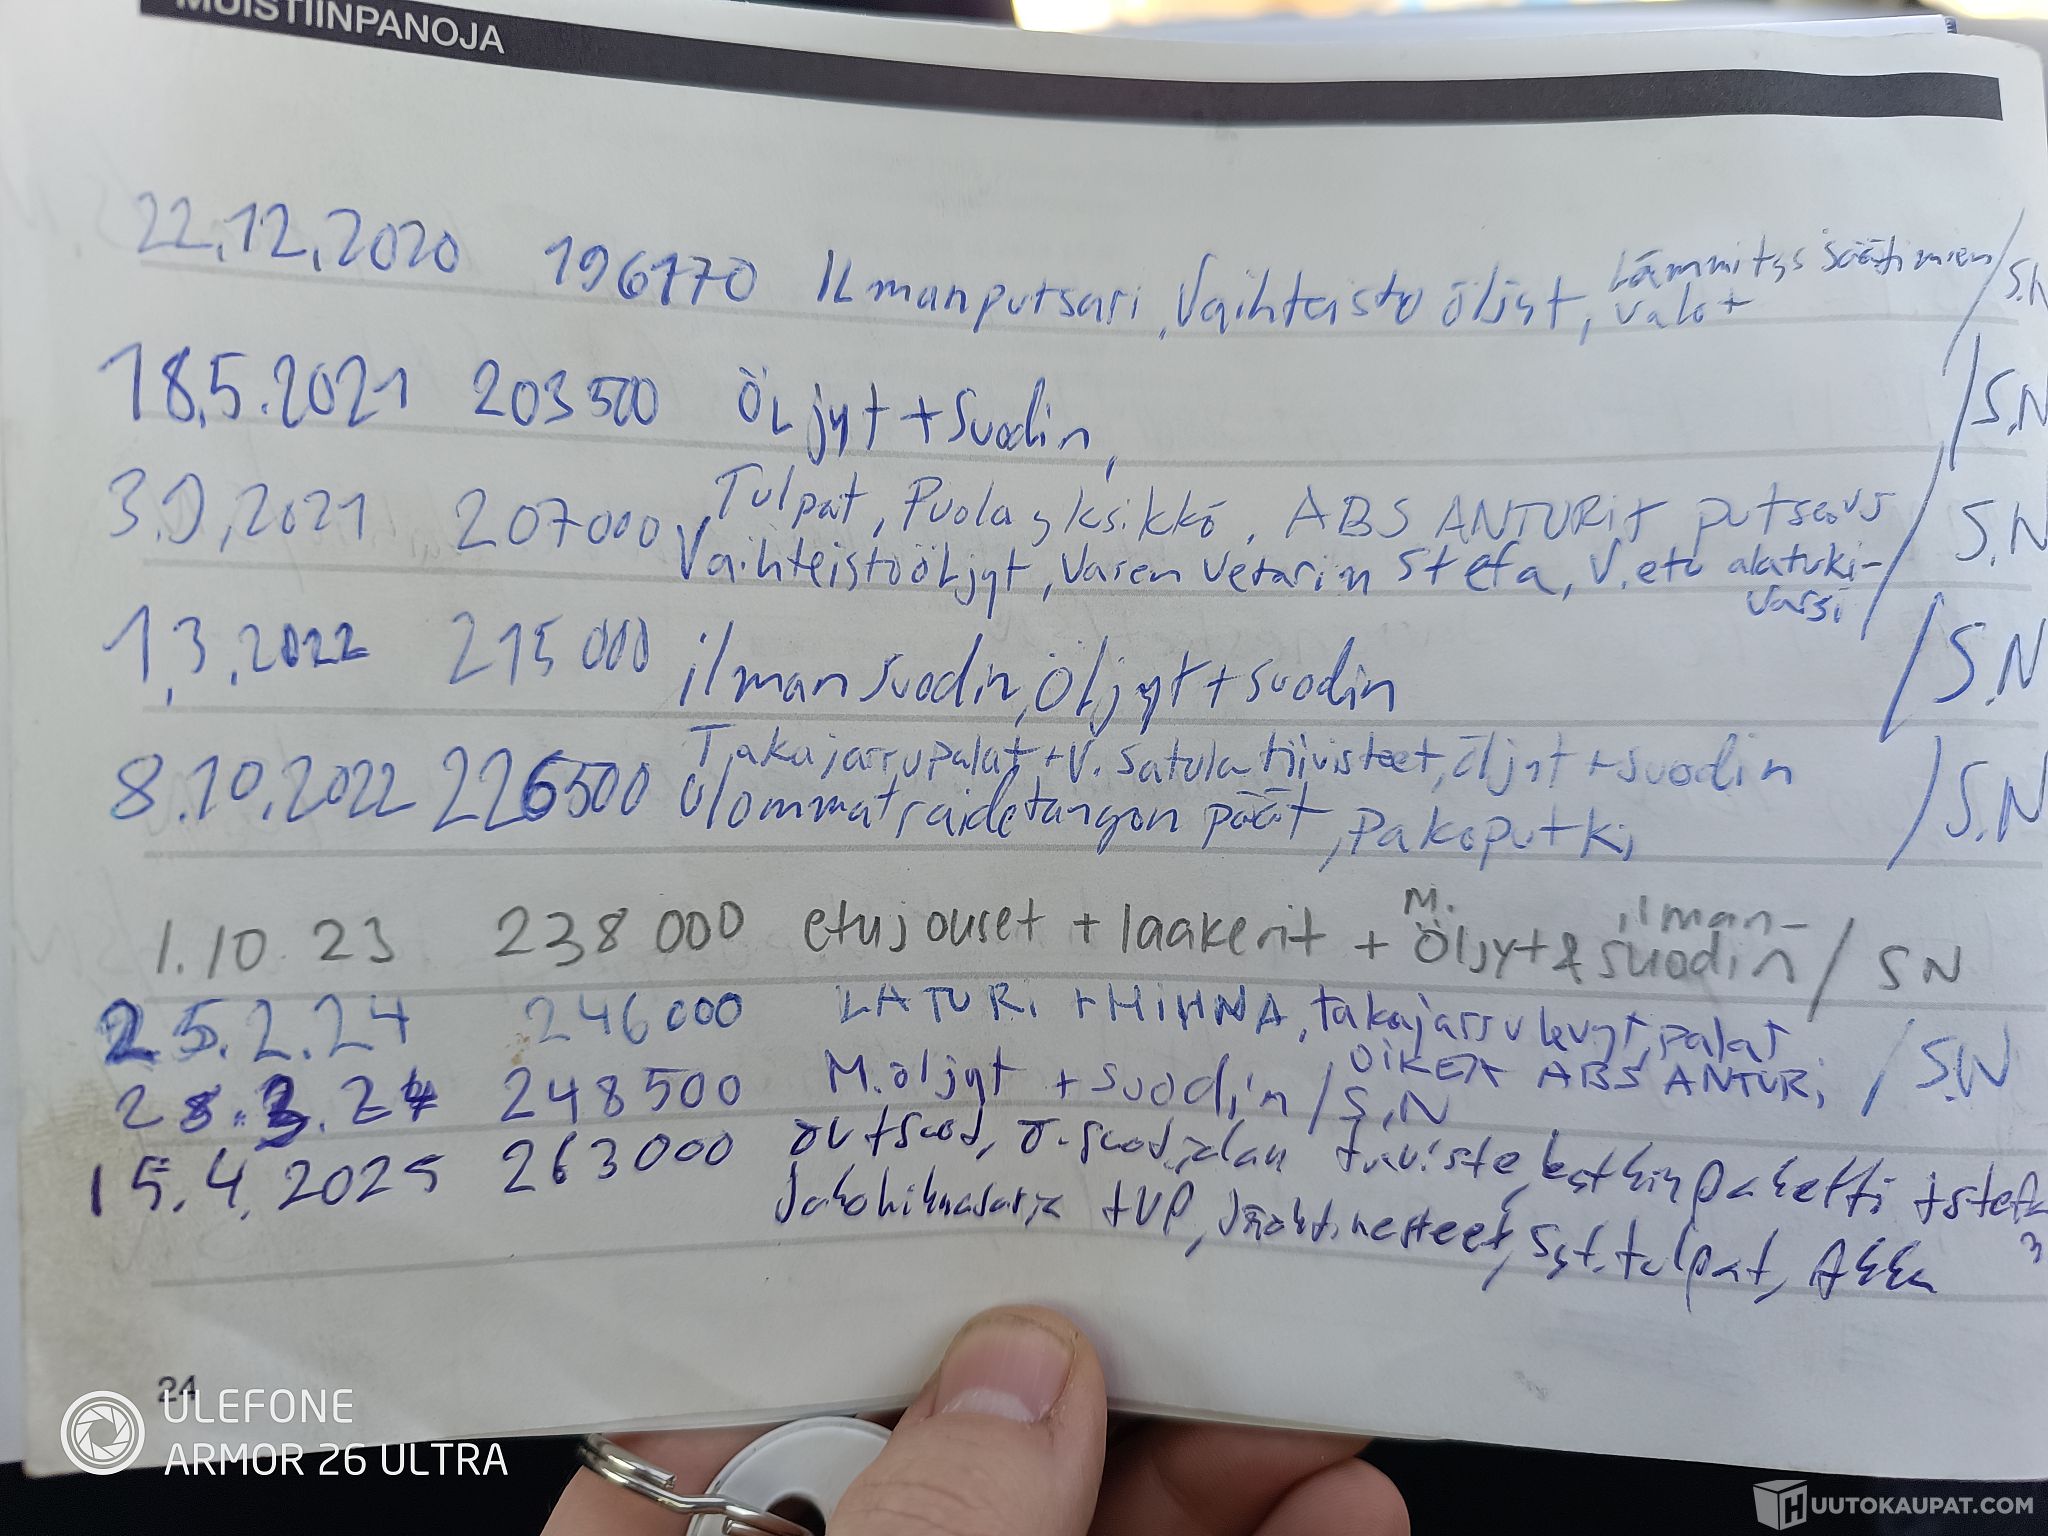 MUISTIINPANOJA
22.12.2020 196170 ILmanputsari, Vaihteisto öljyt, Lämmitys säätimien
valot / S.N
18.5.2021 203500 ÖLjyt + Suodin, / S.N
3.9.2021 207000 Tulpat, Puolayksikkö, ABS ANTURit putsaus / S.N
Vaihteistoöljyt, Vasen Vetarin Stefa, V.etu alatuki-
varsi
1.3.2022 215000 ilmansuodin, ÖLjyt + suodin / S.N
8.10.2022 226500 Takajarrupalat + V. Satula tiivisteet, öljyt + suodin / S.N
Ulommat raidetangon päät, Pakoputki
1.10.23 238000 etujouset + laakerit + M. Öljyt & ilman-
suodin / SN
25.2.24 246000 LATURi + HiHNA, takajarrulevyt, palat
OiKEA ABS ANTURi / S.N
28.3.24 248500 M.öljyt + suodin / S.N
15.4.2025 263000 tiiviste, paketti + stefa
Jakohihnasarja + VP, Jäähdnesteet, Syt.tulpat, Akku
3
24
ULEFONE
ARMOR 26 ULTRA
HUUTOKAUPAT.COM